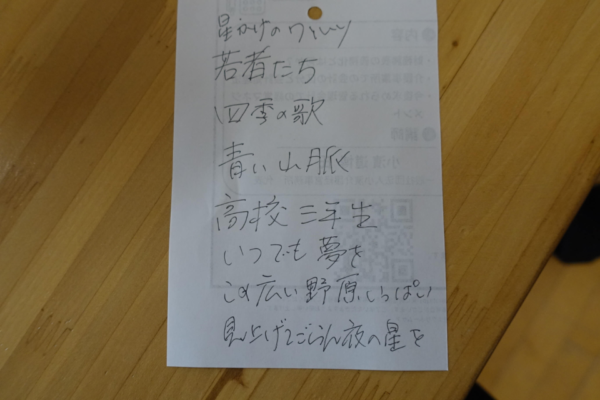 星かげのワルツ
若者たち
四季の歌
青い山脈
高校三年生
いつでも夢を
この広い野原いっぱい
見上げてごらん夜の星を